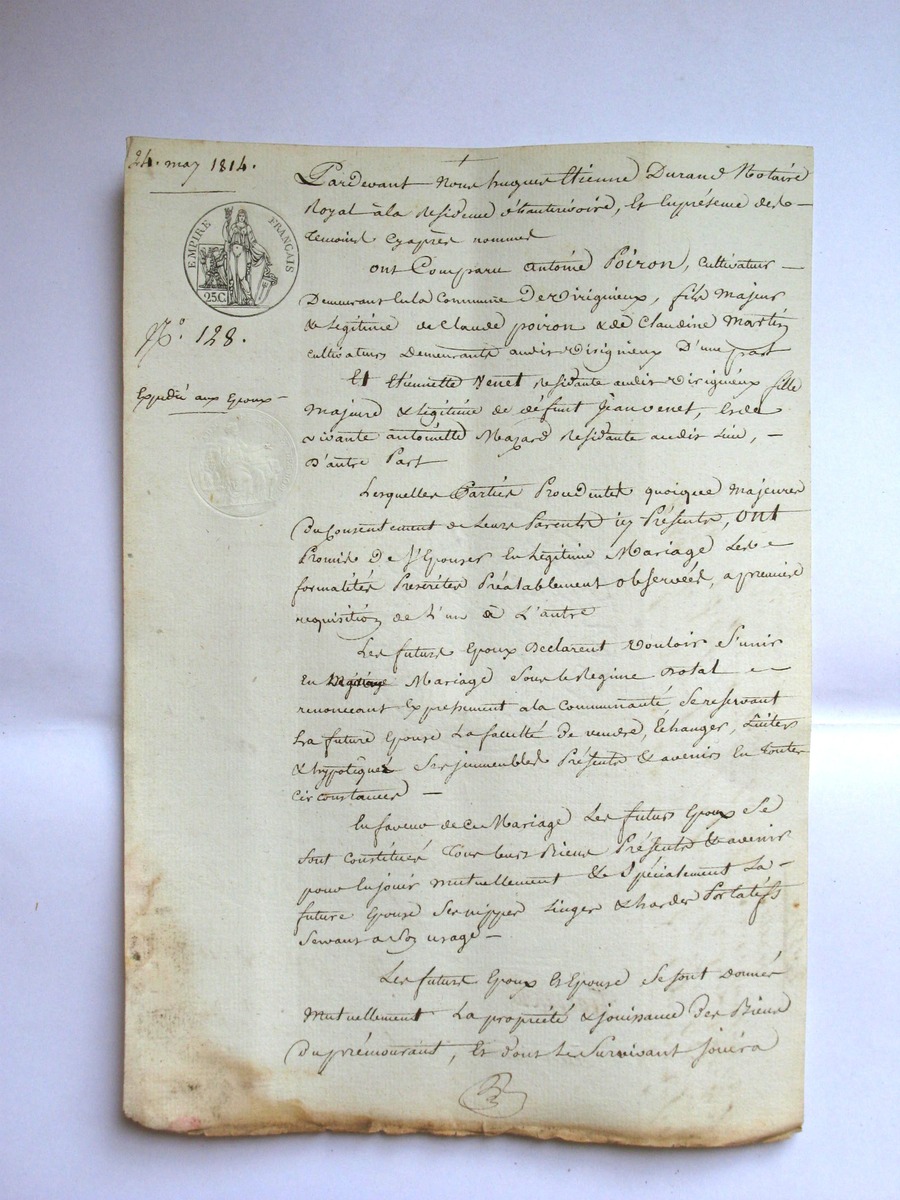 24. may 1814.
EMPIRE FRANÇAIS
25C.
N.º 128.
Expédié aux Epoux
Pardevant Nous hugues Etienne Durand Notaire
Royal à la Residence de Lantérivoire, Et En présence des
temoins Cyaprès nommés
ont Comparu antoine Poiron, Cultivateur
Demeurant En la Commune De Virigneux, fils Majeur
& Légitime de Claude poiron & de Claudine Martin
cultivateurs Demeurants audit Virigneux D'une part
Et Etiennette Venet residante audit Virigneux fille
majeure & Légitime de défunt Jean venet, & de
vivante antoinette Mazard Residante audit Lieu,
D'autre Part
Lesquelles Parties Procedantes quoique majeures
Du Consentement de Leurs Parents icy Présents, ont
Promis De S'Epouser En Légitime Mariage Les
formalités Prescrites Préalablement observées, a premiere
requisition de L'un à L'autre
Les futurs Epoux Declarent Vouloir S'unir
En Mariage Sous le Regime Dotal
renonceant Expressement a la Communauté, Se reservant
La future Epouse La faculté De vendre, Echanger,
& hypotéquer Ses immeubles Présents & avenirs En toutes
Circonstances
En faveur de ce Mariage Les futurs Epoux Se
Sont Constitués Tous leurs Biens Présents & avenir
pour En jouir Mutuellement & Spécialement La
future Epouse Ses nippes Linges & hardes Portatifs
Servant a Son usage
Les futurs Epoux Et Epouse Se Sont Donnés
Mutuellement La propriété & jouissance Des Biens
Du prémourant, Et dont Le Survivant jouira